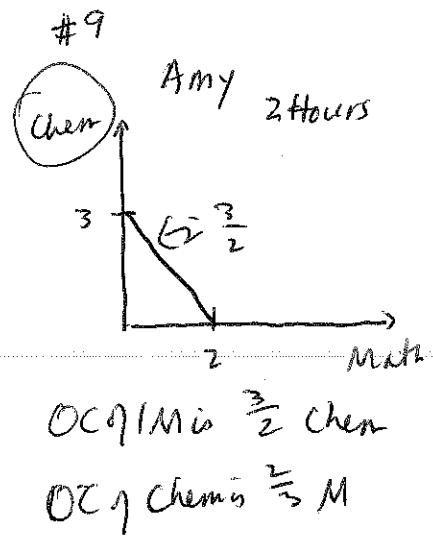 #9
Amy
2 Hours
Chem
3
(-) 3/2
2
Math
OC of 1 M is 3/2 Chem
OC of Chem is 2/3 M